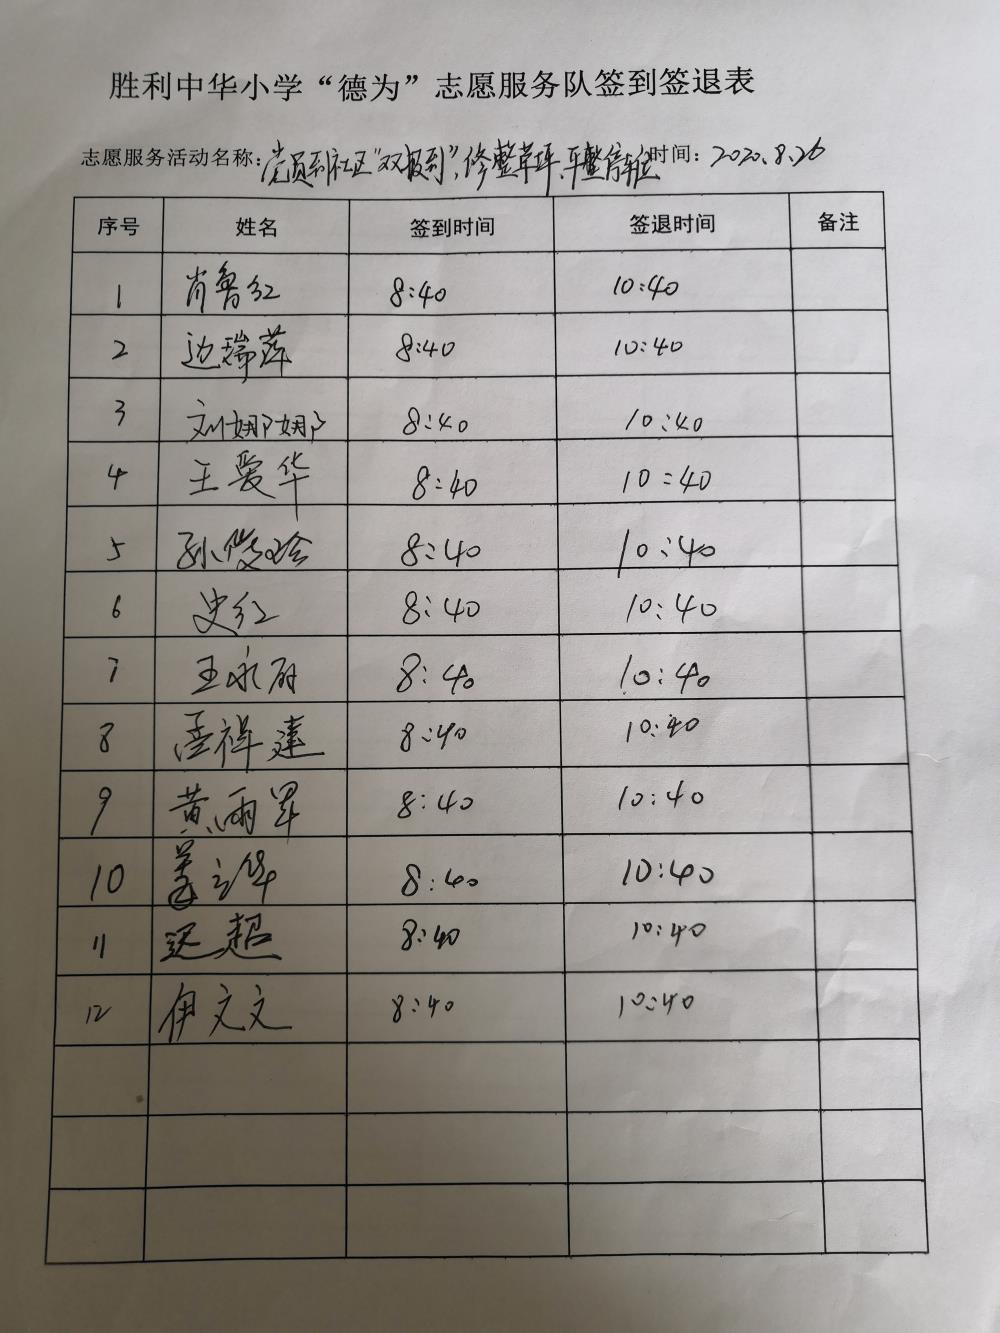 胜利中华小学“德为”志愿服务队签到签退表
志愿服务活动名称：党员到社区“双报到”，修整草坪、平整停车位 时间：2020.8.26
序号 姓名 签到时间 签退时间 备注
1 肖鲁红 8:40 10:40
2 边瑞萍 8:40 10:40
3 刘娜娜 8:40 10:40
4 王爱华 8:40 10:40
5 孙俊玲 8:40 10:40
6 史红 8:40 10:40
7 王永 8:40 10:40
8 孟祥建 8:40 10:40
9 黄雨 8:40 10:40
10 姜立华 8:40 10:40
11 迟超 8:40 10:40
12 伊文文 8:40 10:40